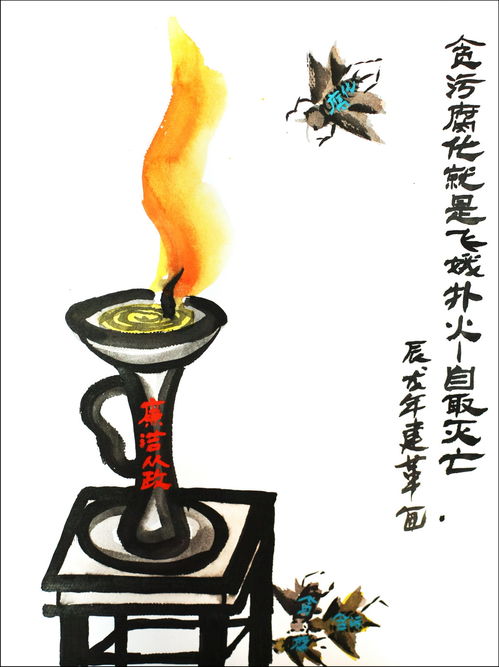 贪污腐化就是飞蛾扑火—自取灭亡.
辰龙年建革画
廉洁从政
腐化